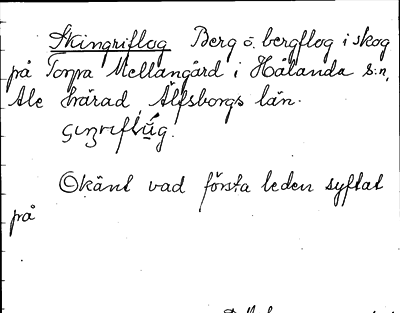 Skingriflog Berg o. bergflog i skog
på Torpa Mellangård i Hålanda s:n,
Ale härad, Älfsborgs län.
Okänt vad första leden syftat
på